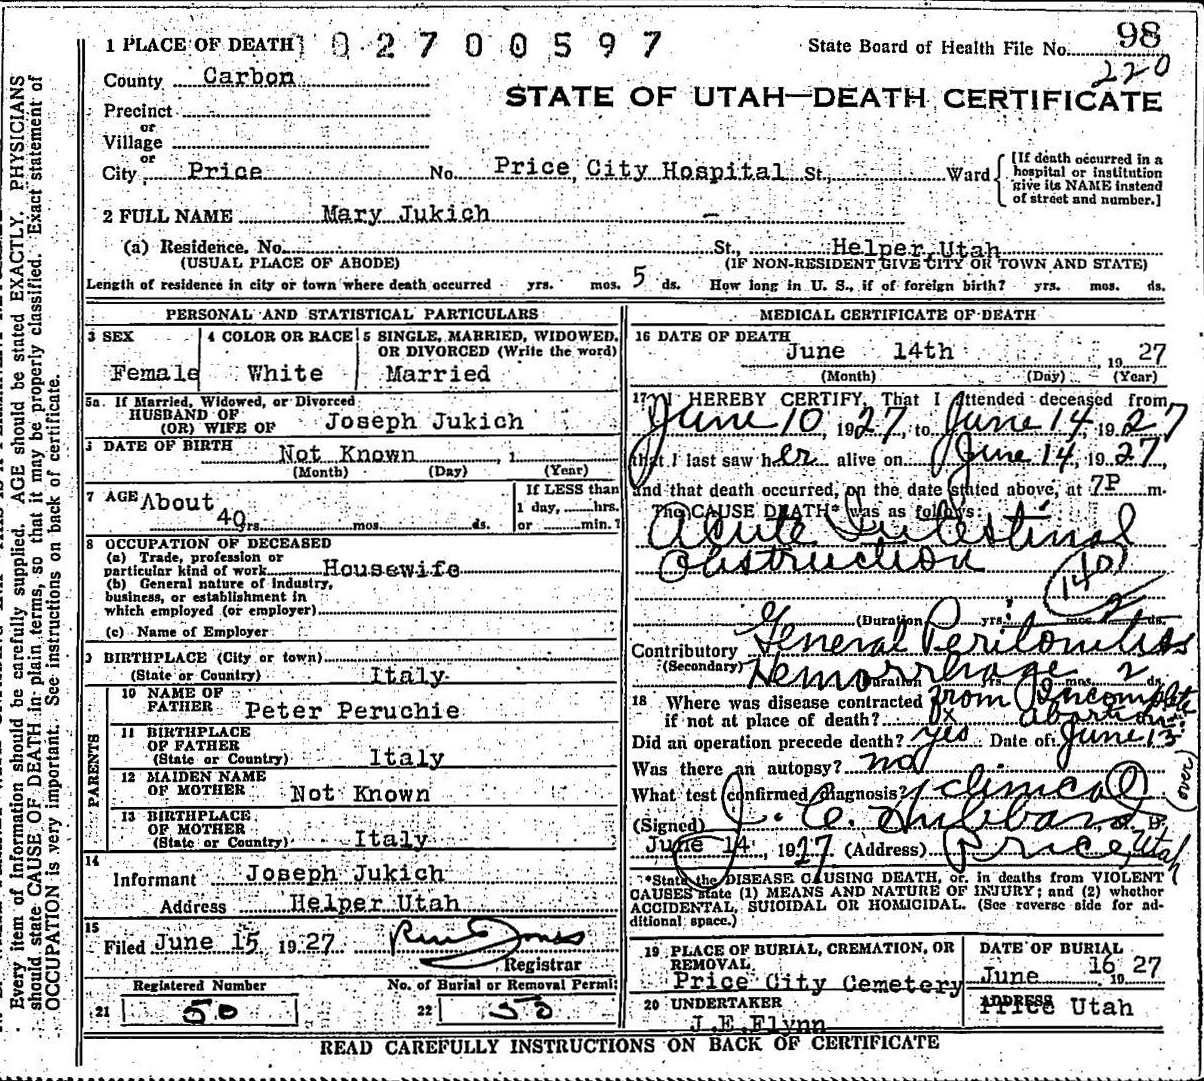 1 PLACE OF DEATH 1 0 2 7 0 0 5 9 7
State Board of Health File No. 98
220
County Carbon
STATE OF UTAH—DEATH CERTIFICATE
Precinct
or
Village
or
City Price No. Price City Hospital St., Ward
[If death occurred in a
hospital or institution
give its NAME instead
of street and number.]
2 FULL NAME Mary Jukich –
(a) Residence. No. St., Helper, Utah
(USUAL PLACE OF ABODE) (IF NON-RESIDENT GIVE CITY OR TOWN AND STATE)
Length of residence in city or town where death occurred yrs. mos. 5 ds. How long in U. S., if of foreign birth? yrs. mos. ds.
PERSONAL AND STATISTICAL PARTICULARS
3 SEX
Female
4 COLOR OR RACE
White
5 SINGLE, MARRIED, WIDOWED,
OR DIVORCED (Write the word)
Married
5a. If Married, Widowed, or Divorced
HUSBAND OF
(OR) WIFE OF Joseph Jukich
DATE OF BIRTH Not Known , 1
(Month) (Day) (Year)
7 AGE About
40 yrs. mos. ds.
If LESS than
1 day, hrs.
or min.?
8 OCCUPATION OF DECEASED
(a) Trade, profession or
particular kind of work Housewife
(b) General nature of industry,
business, or establishment in
which employed (or employer)
(c) Name of Employer
9 BIRTHPLACE (City or town)
(State or Country) Italy
PARENTS
10 NAME OF
FATHER Peter Peruchie
11 BIRTHPLACE
OF FATHER
(State or Country) Italy
12 MAIDEN NAME
OF MOTHER Not Known
13 BIRTHPLACE
OF MOTHER
(State or Country) Italy
14
Informant Joseph Jukich
Address Helper Utah
15
Filed June 15 1927
Registrar
Registered Number No. of Burial or Removal Permit
21 50 22 50
MEDICAL CERTIFICATE OF DEATH
16 DATE OF DEATH
June 14th 19 27
(Month) (Day) (Year)
17 I HEREBY CERTIFY, That I attended deceased from
June 10, 1927, to June 14, 1927
that I last saw her alive on June 14, 1927,
and that death occurred, on the date stated above, at 7P m.
The CAUSE DEATH* was as follows:
Acute Intestinal
Obstruction
140
(Duration yrs. mos. 2 ds.
Contributory General Peritonitis
(Secondary) Hemorrhage 2
Duration yrs. mos. ds.
18 Where was disease contracted from Incomplete
if not at place of death? abortion
Did an operation precede death? yes Date of June 13
Was there an autopsy? no
(over)
What test confirmed diagnosis? clinical
(Signed) J. C. Hubbard, M. D.
June 14, 1927 (Address) Price, Utah
*State the DISEASE CAUSING DEATH, or. in deaths from VIOLENT
CAUSES state (1) MEANS AND NATURE OF INJURY; and (2) whether
ACCIDENTAL, SUICIDAL OR HOMICIDAL. (See reverse side for ad-
ditional space.)
19 PLACE OF BURIAL, CREMATION, OR
REMOVAL
Price City Cemetery
DATE OF BURIAL
June 16 1927
20 UNDERTAKER
J.E.Flynn
ADDRESS
Price Utah
READ CAREFULLY INSTRUCTIONS ON BACK OF CERTIFICATE
Every item of Information should be carefully supplied. AGE should be stated EXACTLY. PHYSICIANS
should state CAUSE OF DEATH in plain terms, so that it may be properly classified. Exact statement of
OCCUPATION is very important. See instructions on back of certificate.